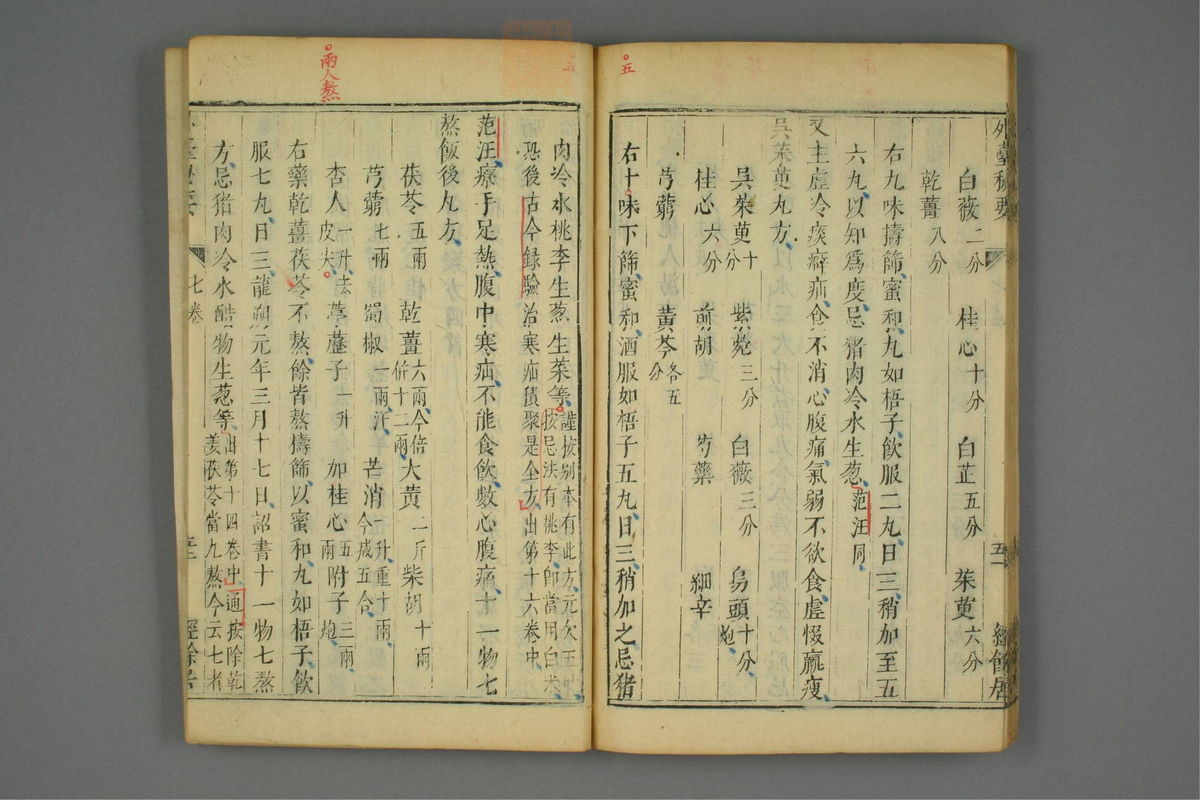 五
外臺秘要
五一 經餘居
白薇二分 桂心十分 白芷五分 茱萸六分
乾薑八分
右九味擣篩蜜和丸如梧子飲服二丸日三稍加至五
六丸以知爲度忌猪肉冷水生葱范汪同
又主虛冷痰癖疝食不消心腹痛氣弱不欲食虛惙羸瘦
吳茱萸丸方
吳茱萸十分 紫菀三分 白薇三分 烏頭十分炮
桂心六分 前胡 芍藥 細辛
芎藭 黃芩各五分
右十味下篩蜜和酒服如梧子五丸日三稍加之忌猪
肉冷水桃李生葱生菜等謹按別本有此方元欠五味
按忌法有桃李卽當用白朮
恐後古今錄驗治寒疝積聚是全方出第十六卷中
范汪療手足熱腹中寒疝不能食飲數心腹痛十一物七
熬飯後丸方
茯苓五兩 乾薑六兩今倍併十二兩 大黃二斤 柴胡十兩
芎藭七兩 蜀椒一兩汗 芒消一升重十兩今減五合
杏人一升去皮尖 葶藶子一升 加桂心五兩 附子三兩炮
右藥乾薑茯苓不熬餘皆熬擣篩以蜜和丸如梧子飲
服七丸日三龍朔元年三月十七日詔書十一物七熬
方忌猪肉冷水醋物生葱等出第十四卷中通按除乾
姜茯苓當九熬今云七者
七卷
兩人熬